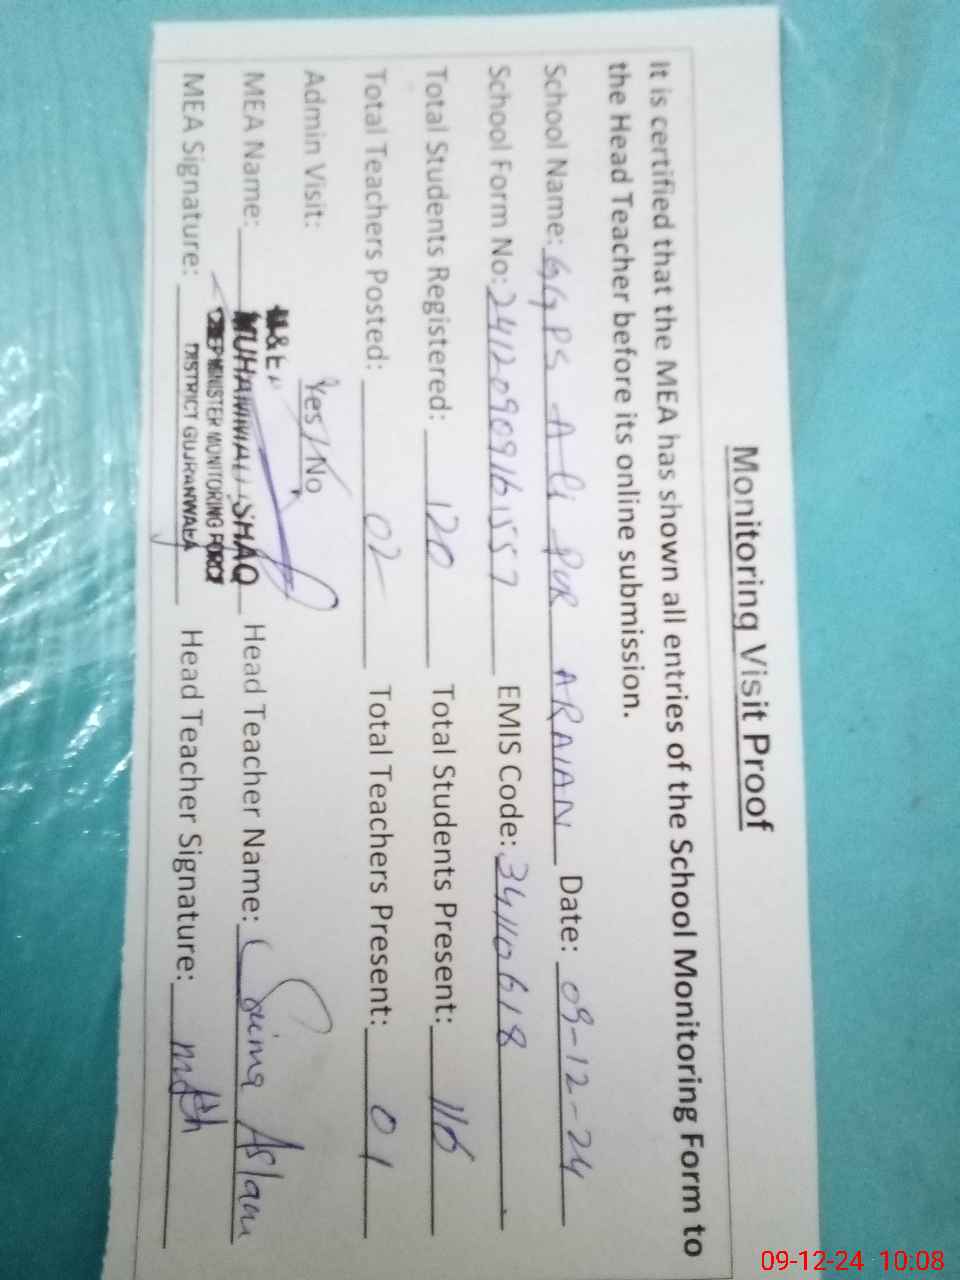 Monitoring Visit Proof
It is certified that the MEA has shown all entries of the School Monitoring Form to
the Head Teacher before its online submission.
School Name: GGPS Ali PUR ARAIAN Date: 09-12-24
School Form No: 24120909161557 EMIS Code: 34110618
Total Students Registered: 120 Total Students Present: 116
Total Teachers Posted: 02 Total Teachers Present: 01
Admin Visit: Yes/No
MEA Name: MUHAMMAD ISHAQ Head Teacher Name: Saima Aslam
CHIEF MINISTER MONITORING FORCE
MEA Signature: DISTRICT GUJRANWALA Head Teacher Signature:
09-12-24 10:08